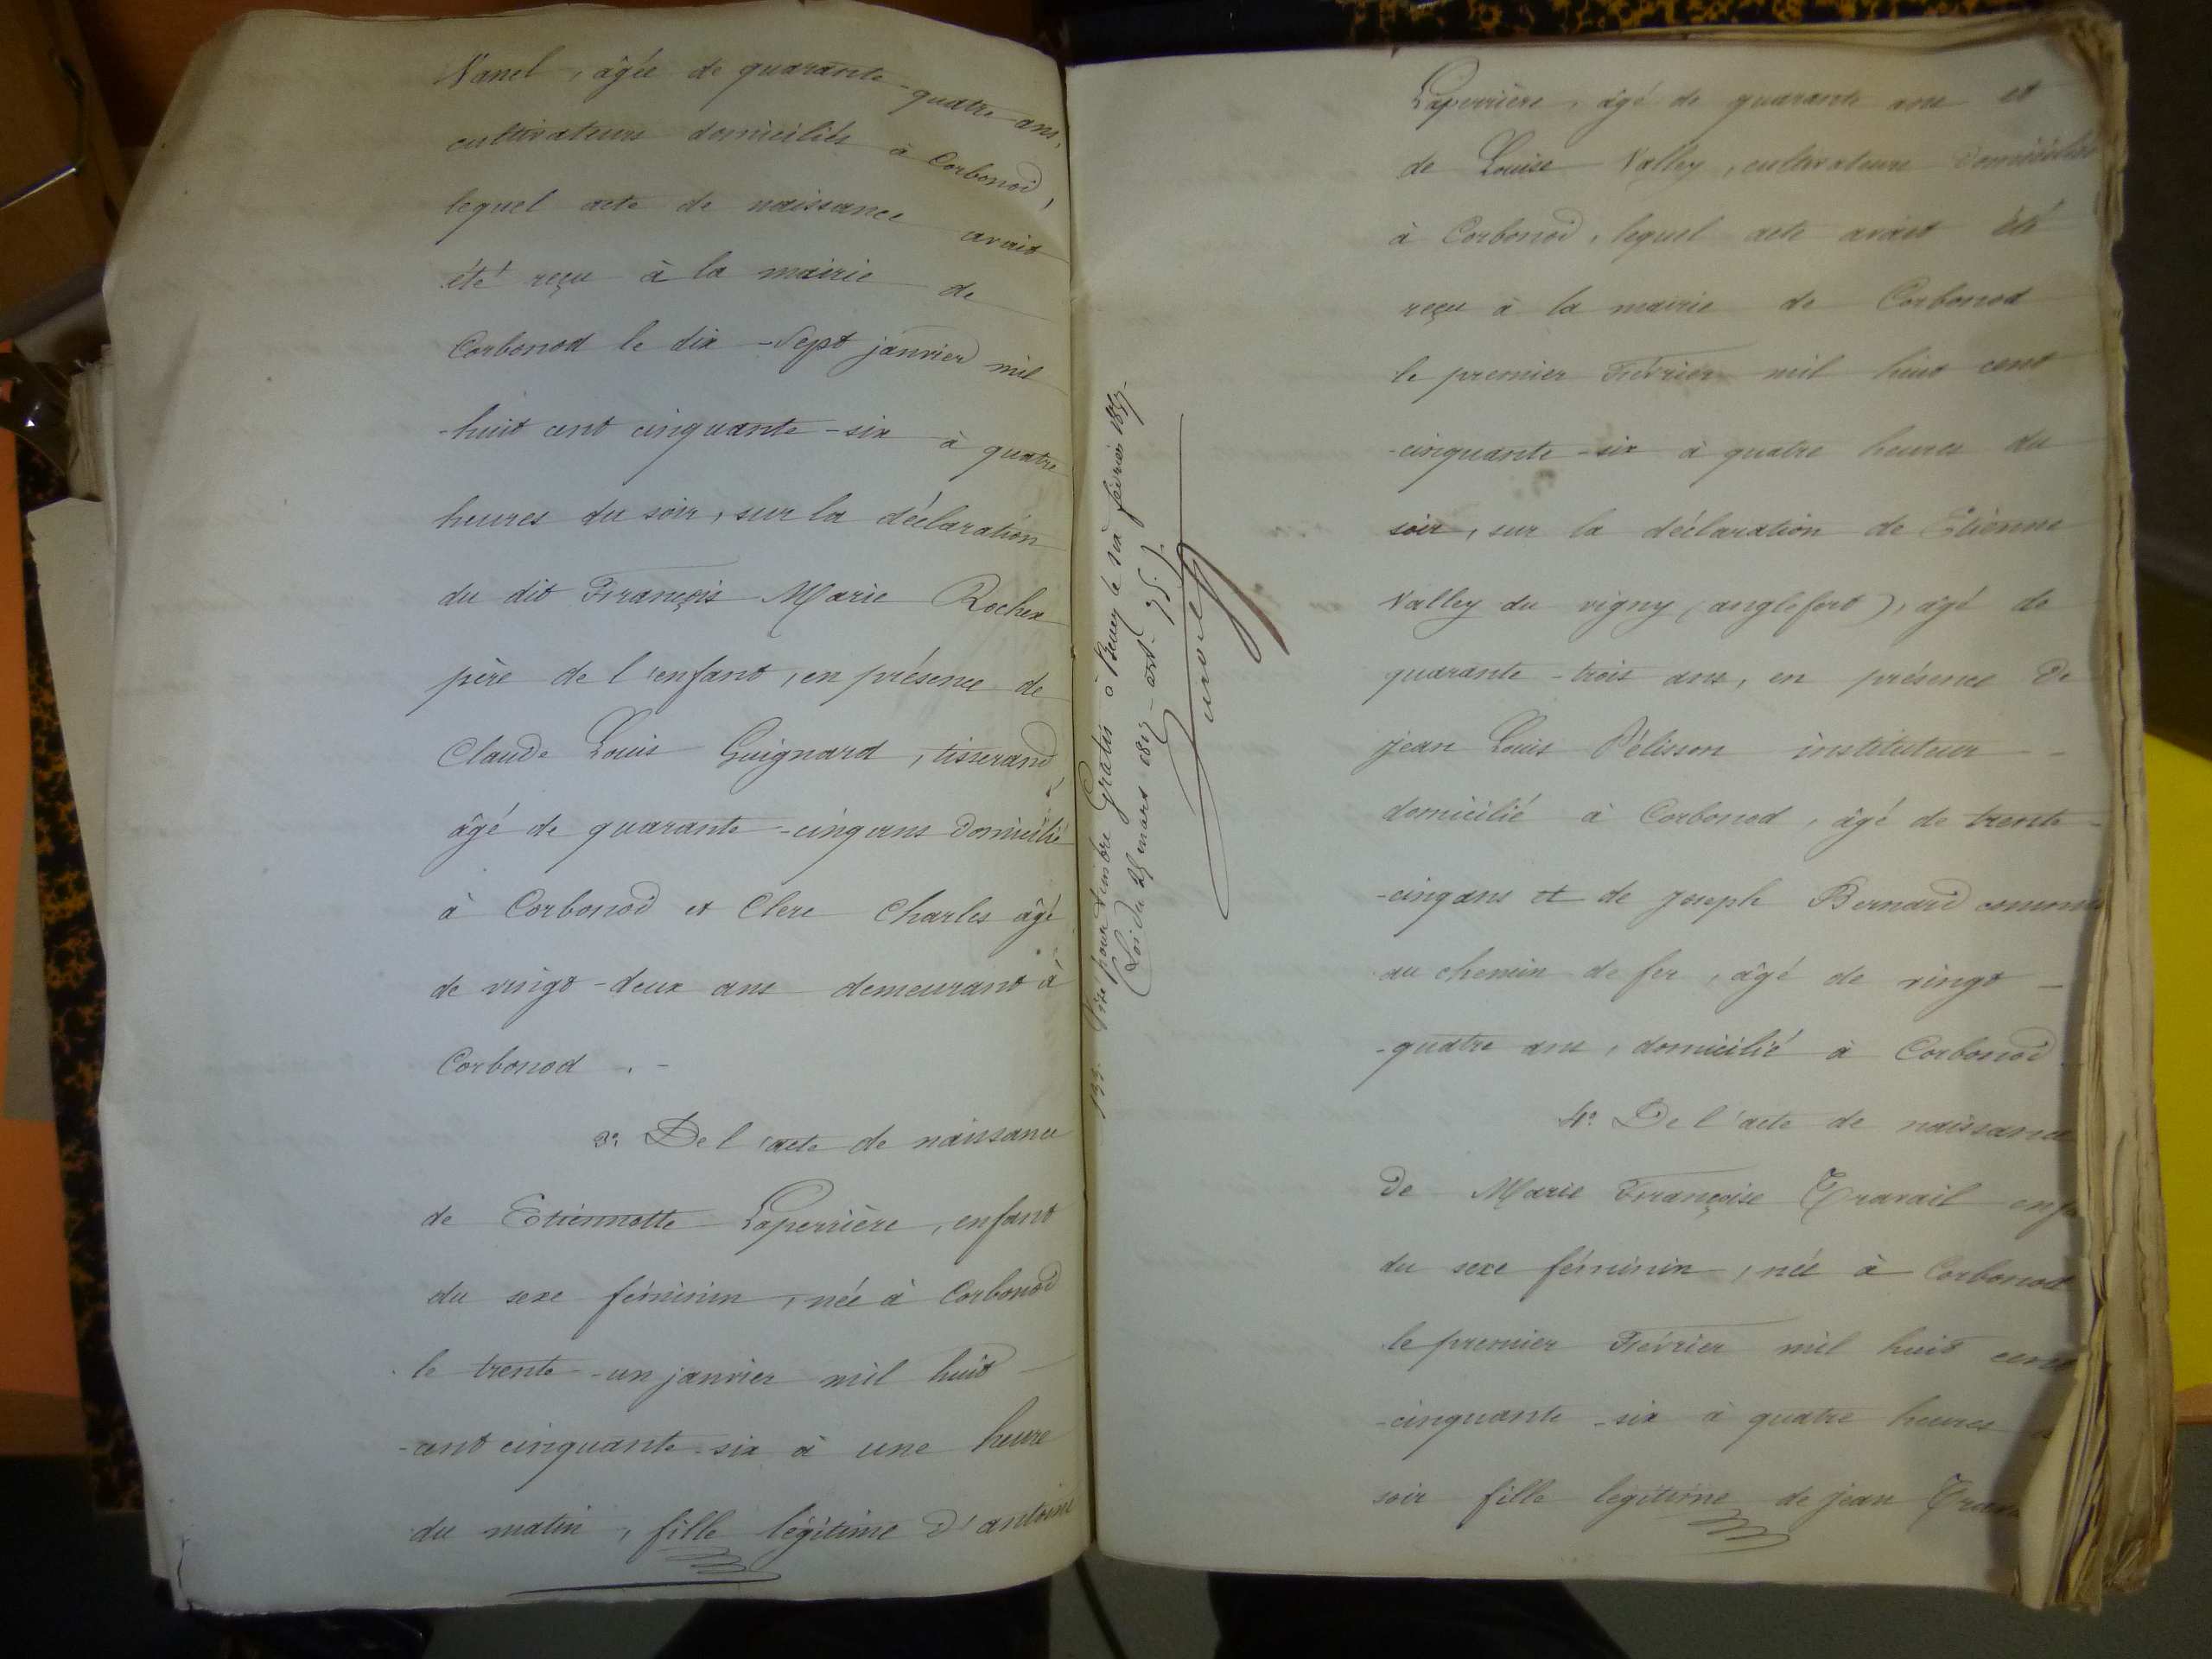 Nanel, âgée de quarante-quatre ans,
cultivateurs domiciliés à Corbonod,
lequel acte de naissance avait
été reçu à la mairie de
Corbonod le dix-sept janvier mil
-huit cent cinquante-six à quatre
heures du soir, sur la déclaration
du dit François Marie Rochex
père de l'enfant, en présence de
Claude Louis Guignard, tisserand,
âgé de quarante-cinq ans domicilié
à Corbonod et Clerc Charles âgé
de vingt-deux ans demeurant à
Corbonod . -
3º. De l'acte de naissance
de Etiennette Laperrière, enfant
du sexe féminin, née à Corbonod
le trente-un janvier mil huit
-cent cinquante-six à une heure
du matin, fille légitime d'antoine
133. Visé pour timbre Gratis à Belley le six février 1857.
(Loi du 25 mars 1817 - art. 75.)
Laperrière, âgé de quarante ans et
de Louise Valley, cultivateurs domiciliés
à Corbonod, lequel acte avait été
reçu à la mairie de Corbonod
le premier Février mil huit cent
-cinquante-six à quatre heures du
soir, sur la déclaration de Etienne
Valley du vigny (anglefort), âgé de
quarante-trois ans, en présence de
jean Louis Pélisson instituteur -
domicilié à Corbonod, âgé de trente-
-cinq ans et de joseph Bernard commis
au chemin de fer, âgé de vingt-
-quatre ans, domicilié à Corbonod
4º. De l'acte de naissance
de Marie Françoise Travail enfa
du sexe féminin, née à Corbonod
le premier Février mil huit cent
-cinquante-six à quatre heures
soir fille légitime de jean Trava